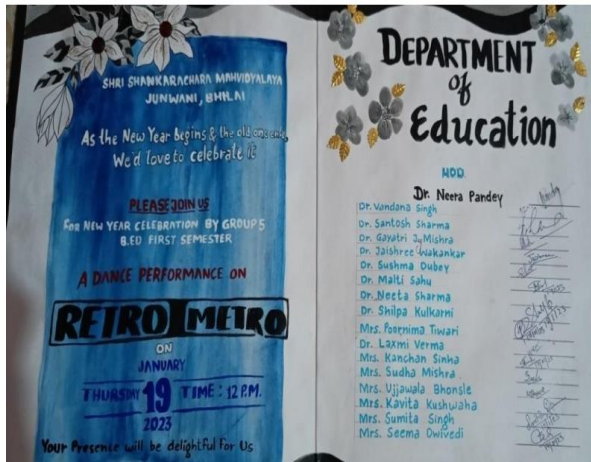 SHRI SHANKARACHARA MAHVIDYALAYA
JUNWANI, BHILAI
As the New Year Begins & the old one ends,
We'd love to celebrate it
PLEASE JOIN US
FOR NEW YEAR CELEBRATION BY GROUP 5
B.ED FIRST SEMESTER
A DANCE PERFORMANCE ON
RETRO METRO
ON
JANUARY
THURSDAY 19 TIME: 12 P.M.
2023
Your Presence will be delightful for Us
DEPARTMENT
of
Education
HOD
Dr. Neera Pandey
Dr. Vandana Singh
Dr. Santosh Sharma
Dr. Gayatri Jy Mishra
Dr. Jaishree Wakankar
Dr. Sushma Dubey
Dr. Malti Sahu
Dr. Neeta Sharma
Dr. Shilpa Kulkarni
Mrs. Poornima Tiwari
Dr. Laxmi Verma
Mrs. Kanchan Sinha
Mrs. Sudha Mishra
Mrs. Ujjawala Bhonsle
Mrs. Kavita Kushwaha
Mrs. Sumita Singh
Mrs. Seema Dwivedi